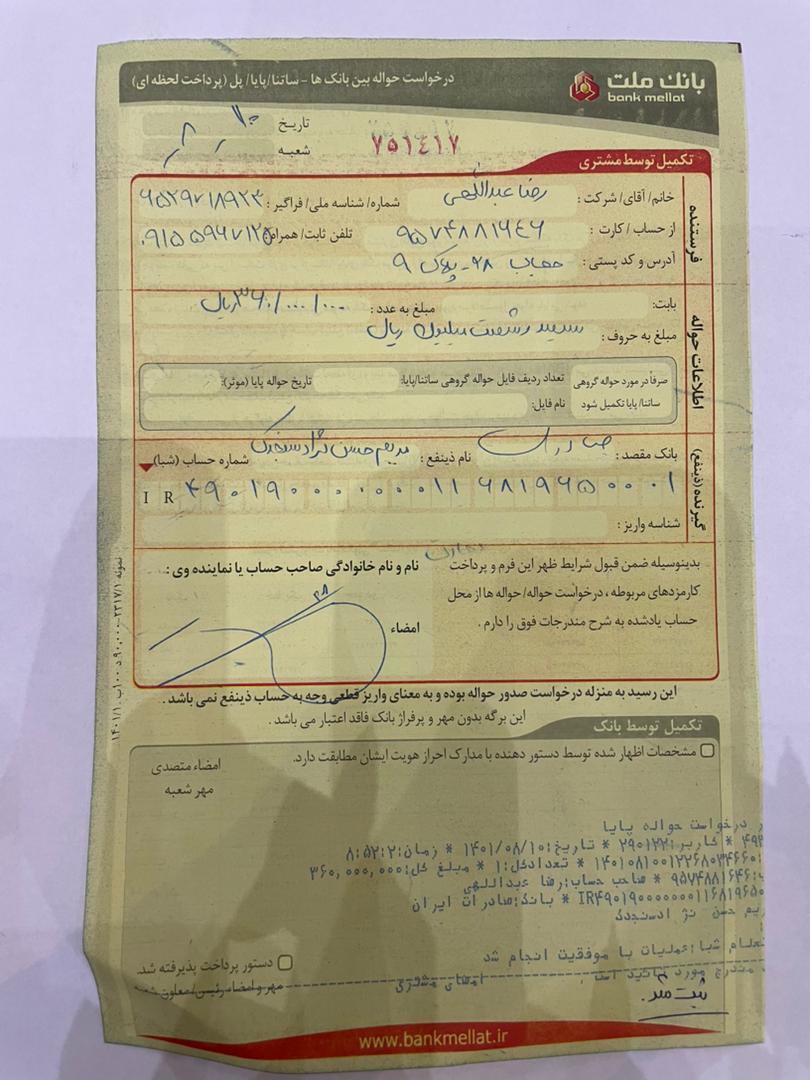 بانک ملت
bank mellat
درخواست حواله بین بانک ها - ساتنا/پایا/ پل (پرداخت لحظه ای)
تاریخ ۱۰ ر ۸ ر
شعبه
۷۵۱۴۱۷
تکمیل توسط مشتری
فرستنده
خانم/ آقای/ شرکت : رضا عبداللهی شماره/ شناسه ملی/ فراگیر : ۶۵۲۹۷۱۸۹۲۳
از حساب / کارت : ۹۵۷۴۸۸۱۶۴۶ تلفن ثابت/ همراه:
آدرس و کد پستی : ۲۸ - پلاک ۹
اطلاعات حواله
بابت: مبلغ به عدد : ۳۶۰/۰۰۰/۰۰۰ ریال
مبلغ به حروف : سیصد و شصت میلیون ریال
صرفاً در مورد حواله گروهی ساتنا/ پایا تکمیل شود
تعداد ردیف فایل حواله گروهی ساتنا/پایا: تاریخ حواله پایا (موثر):
نام فایل:
گیرنده (ذینفع)
بانک مقصد : صادرات نام ذینفع : مریم حسن نژاد شماره حساب (شبا)
IR ۴۹۰۱۹۰۰۰۰۰۰۰۱۱۶۸۱۹۶۵۰۰۰۱
شناسه واریز :
بدینوسیله ضمن قبول شرایط ظهر این فرم و پرداخت نام و نام خانوادگی صاحب حساب یا نماینده وی :
کارمزدهای مربوطه ، درخواست حواله/ حواله ها از محل
حساب یادشده به شرح مندرجات فوق را دارم . امضاء
این رسید به منزله درخواست صدور حواله بوده و به معنای واریز قطعی وجه به حساب ذینفع نمی باشد .
این برگه بدون مهر و پرفراژ بانک فاقد اعتبار می باشد .
تکمیل توسط بانک
مشخصات اظهار شده توسط دستور دهنده با مدارک احراز هویت ایشان مطابقت دارد.
امضاء متصدی
مهر شعبه
درخواست حواله پایا
کاربر:۲۹۰۱۲۲ * تاریخ:۱۴۰۱/۰۸/۱۰ * زمان:۸:۵۲:۲
۱۴۰۱۰۸۱۰۰۱۲۲۶۸۰۳۴۶۶۰ * تعدادکل:۱ * مبلغ کل:۳۶۰,۰۰۰,۰۰۰
۹۵۷۴۸۸۱۶۴۶ * صاحب حساب:رضا عبداللهی
IR۴۹۰۱۹۰۰۰۰۰۰۰۱۱۶۸۱۹۶۵۰ * بانک:صادرات ایران
حسن نژ ادسنجدک
شبا:عملیات با موفقیت انجام شد
مندرج مورد تائید است . امضای مشتری
دستور پرداخت پذیرفته شد.
مهر و امضاء رئیس/ معاون شعبه
ثبت شد.
www.bankmellat.ir